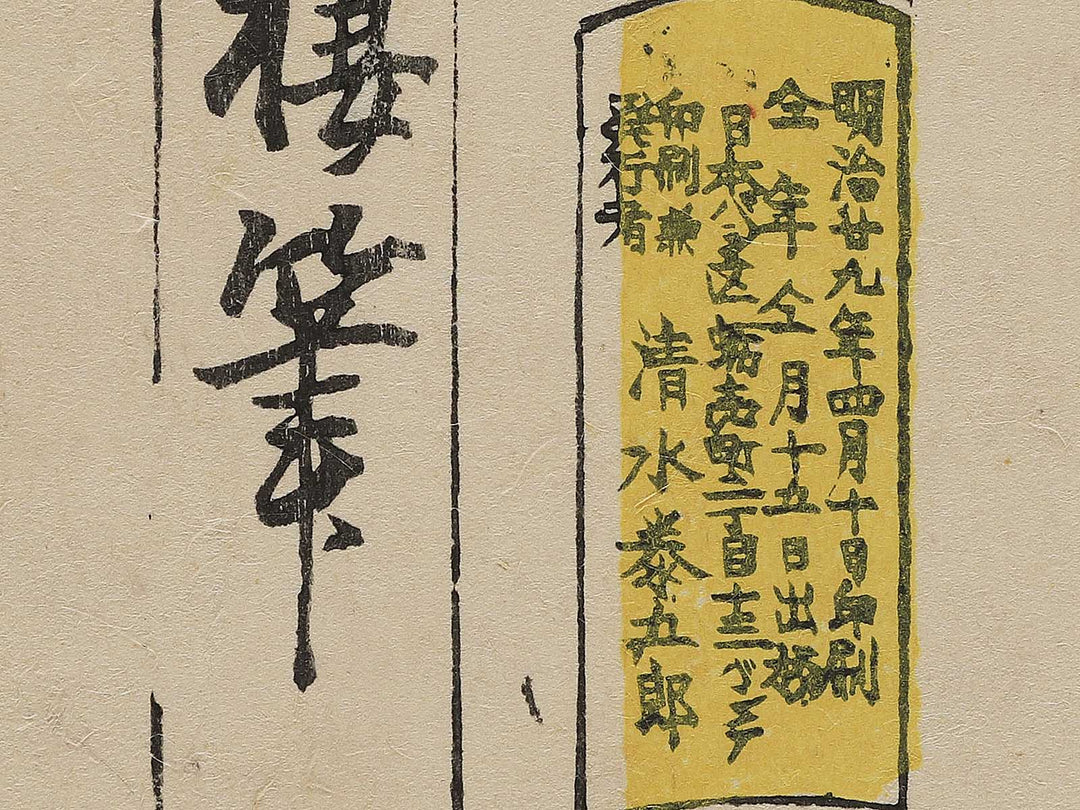 明治廿九年四月十日印刷
全年仝月十五日出板
日本区蛎壳町二丁目十三バンチ
印刷兼
発行者 清水泰五郎
筆